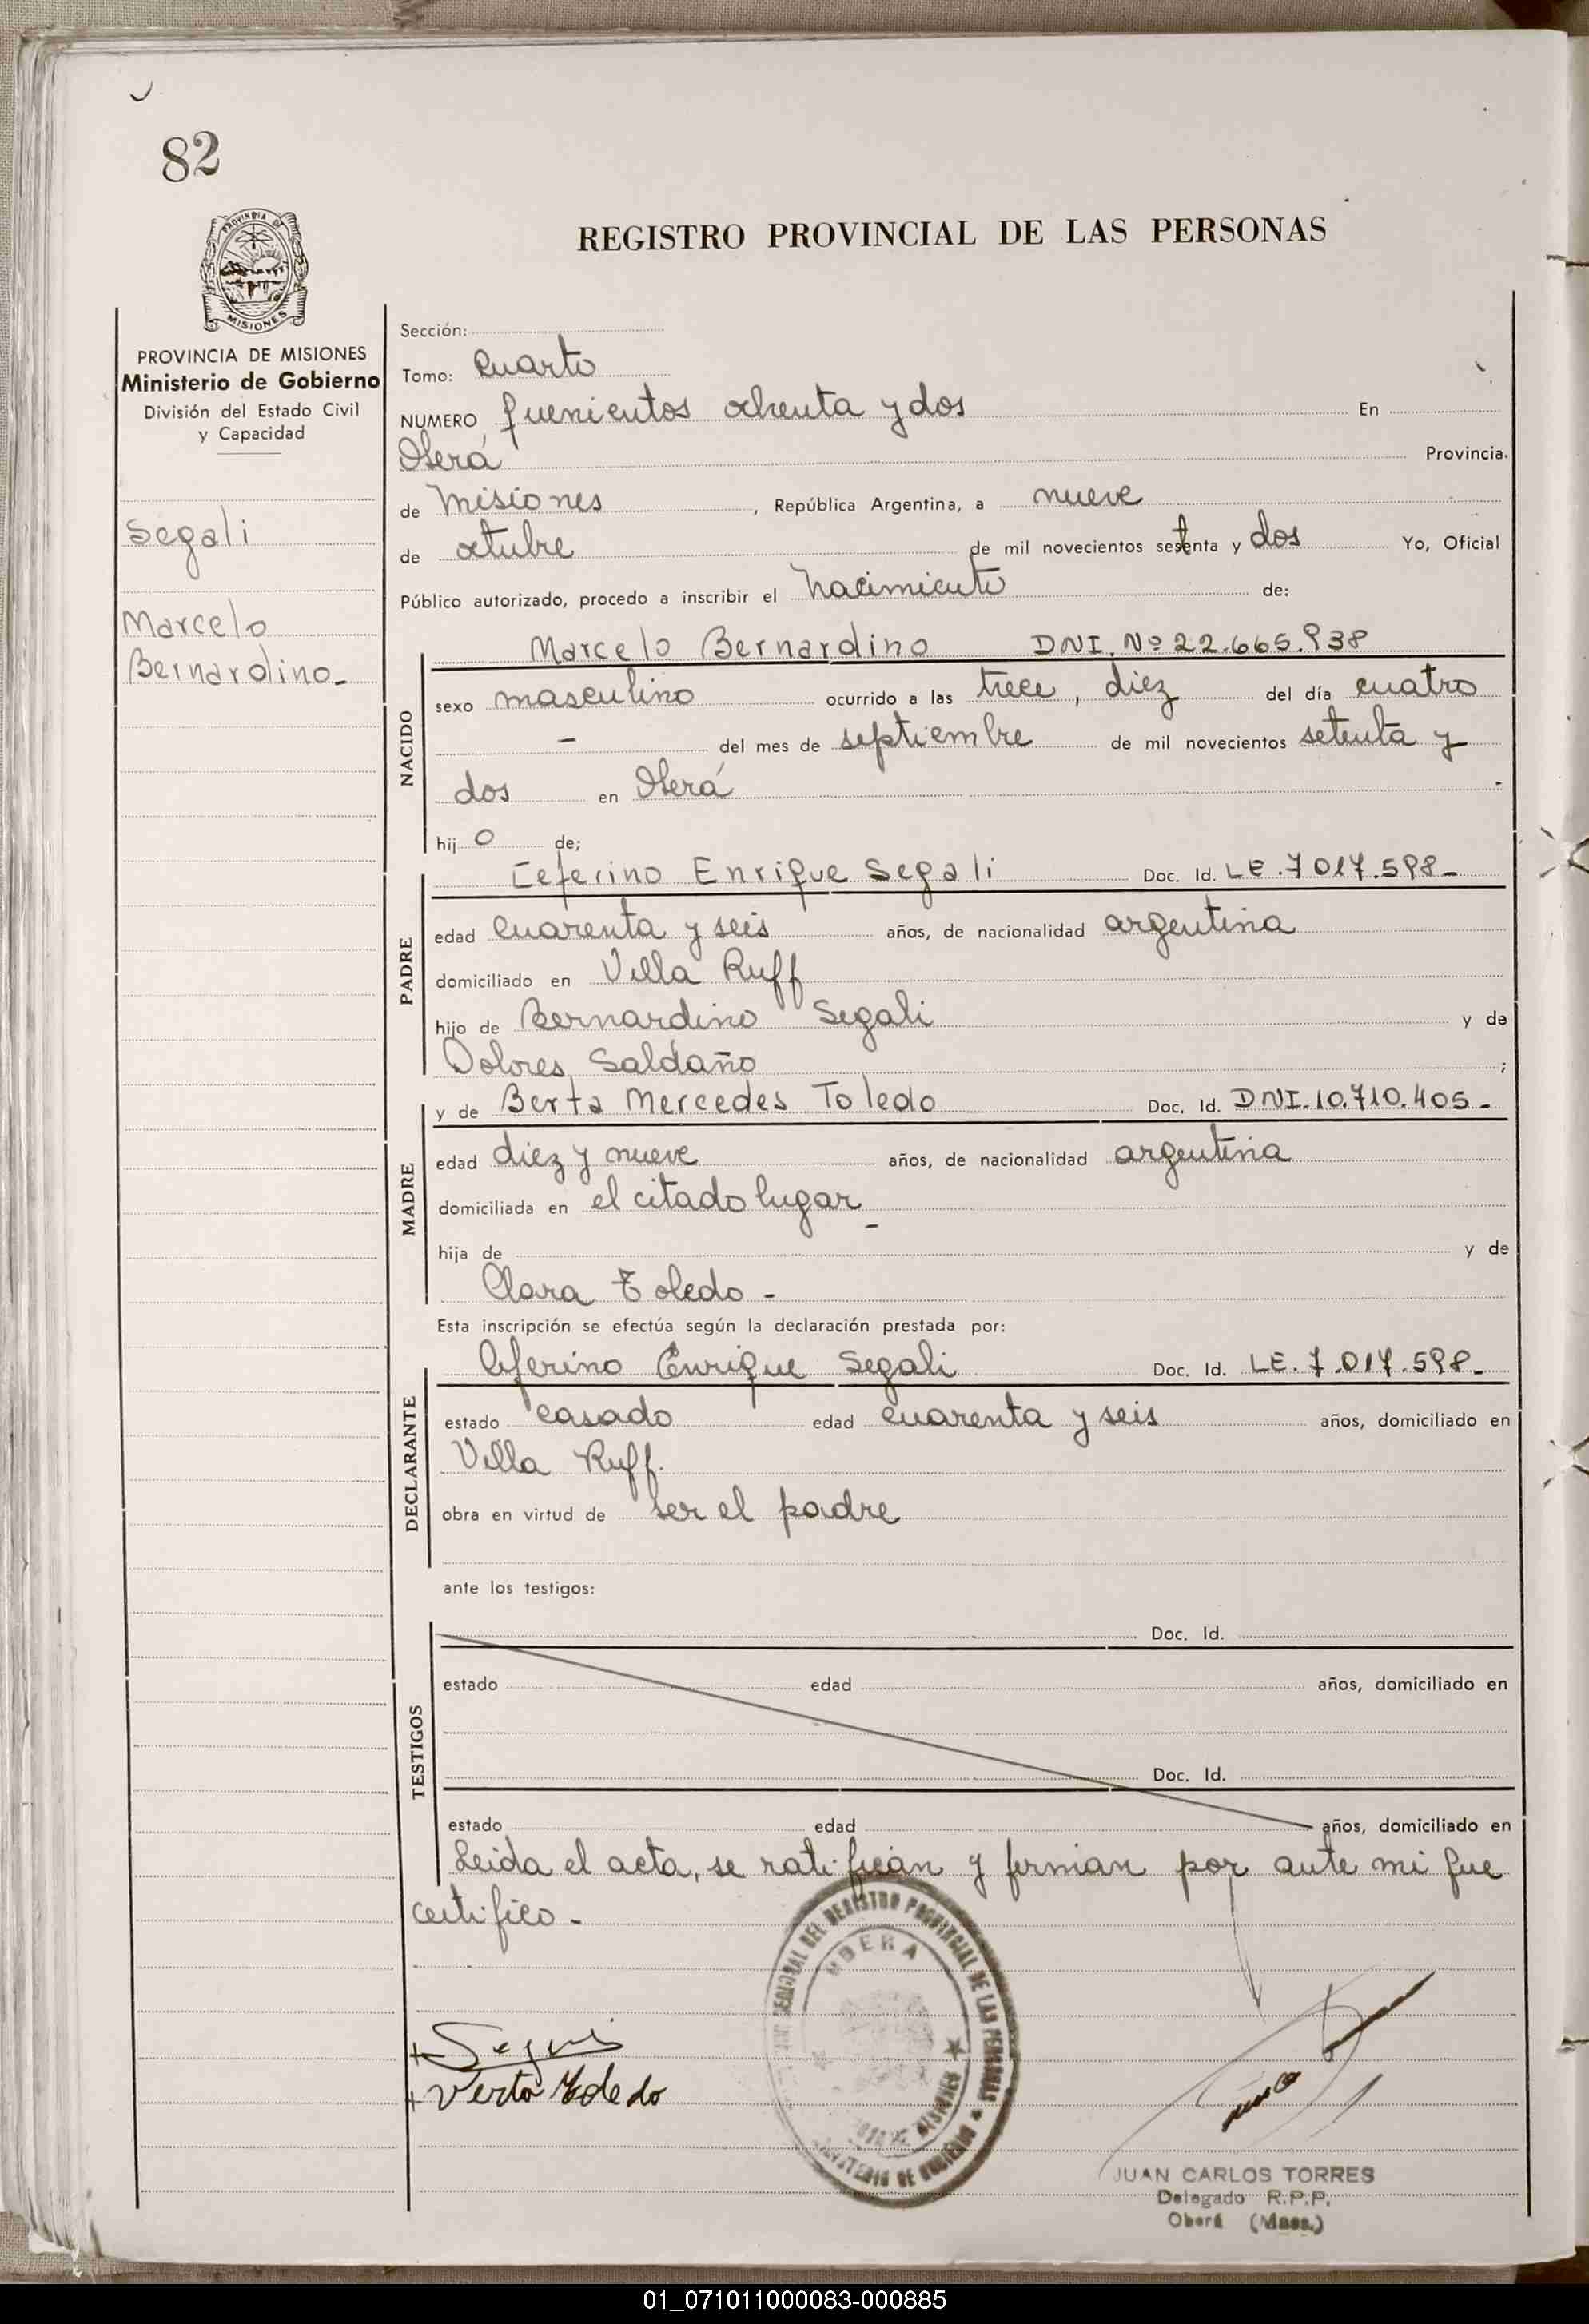 82
REGISTRO PROVINCIAL DE LAS PERSONAS
PROVINCIA DE MISIONES
Ministerio de Gobierno
División del Estado Civil
y Capacidad
Segali
Marcelo
Bernardino-
Sección:
Tomo: Cuarto
NUMERO quenientos ochenta y dos En
Oberá Provincia
de Misiones, República Argentina, a nueve
de octubre de mil novecientos setenta y dos Yo, Oficial
Público autorizado, procedo a inscribir el nacimiento de:
NACIDO
Marcelo Bernardino DNI. Nº 22.665.938
sexo masculino ocurrido a las trece, diez del día cuatro
- del mes de septiembre de mil novecientos setenta y
dos en Oberá
hij o de;
PADRE
Ceferino Enrique Segali Doc. Id. LE. 7017.598-
edad cuarenta y seis años, de nacionalidad argentina
domiciliado en Villa Ruff
hijo de Bernardino Segali y de
Dolores Saldaño ;
MADRE
y de Berta Mercedes Toledo Doc. Id. DNI. 10.710.405-
edad diez y nueve años, de nacionalidad argentina
domiciliada en el citado lugar -
hija de y de
Clara Toledo -
Esta inscripción se efectúa según la declaración prestada por:
DECLARANTE
Ceferino Enrique Segali Doc. Id. LE. 7.017.598-
estado casado edad cuarenta y seis años, domiciliado en
Villa Ruff.
obra en virtud de ser el padre
ante los testigos:
TESTIGOS
Doc. Id.
estado edad años, domiciliado en
Doc. Id.
estado edad años, domiciliado en
Leida el acta, se ratifican y firman por ante mi que
certifico -
+ Verta Toledo
REGISTRO PROVINCIAL DE LAS PERSONAS
OBERA
JUAN CARLOS TORRES
Delegado R.P.P.
Oberá (Mnes.)
01_071011000083-000885